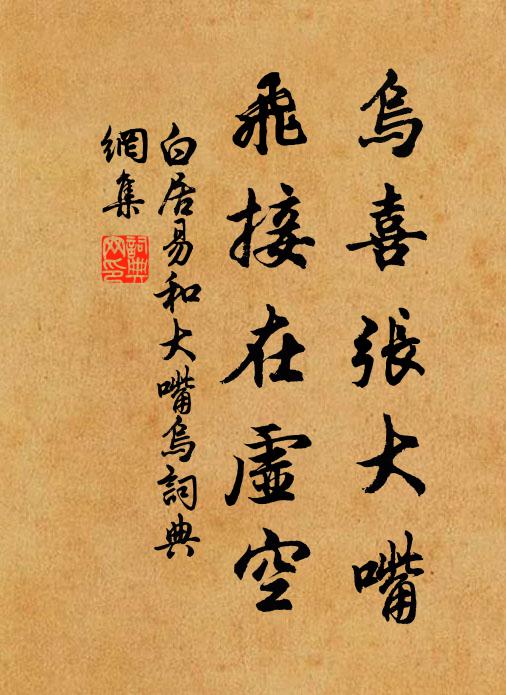 烏喜張大嘴
飛接在虛空
白居易和大嘴烏詞典
網集
詞典
网印